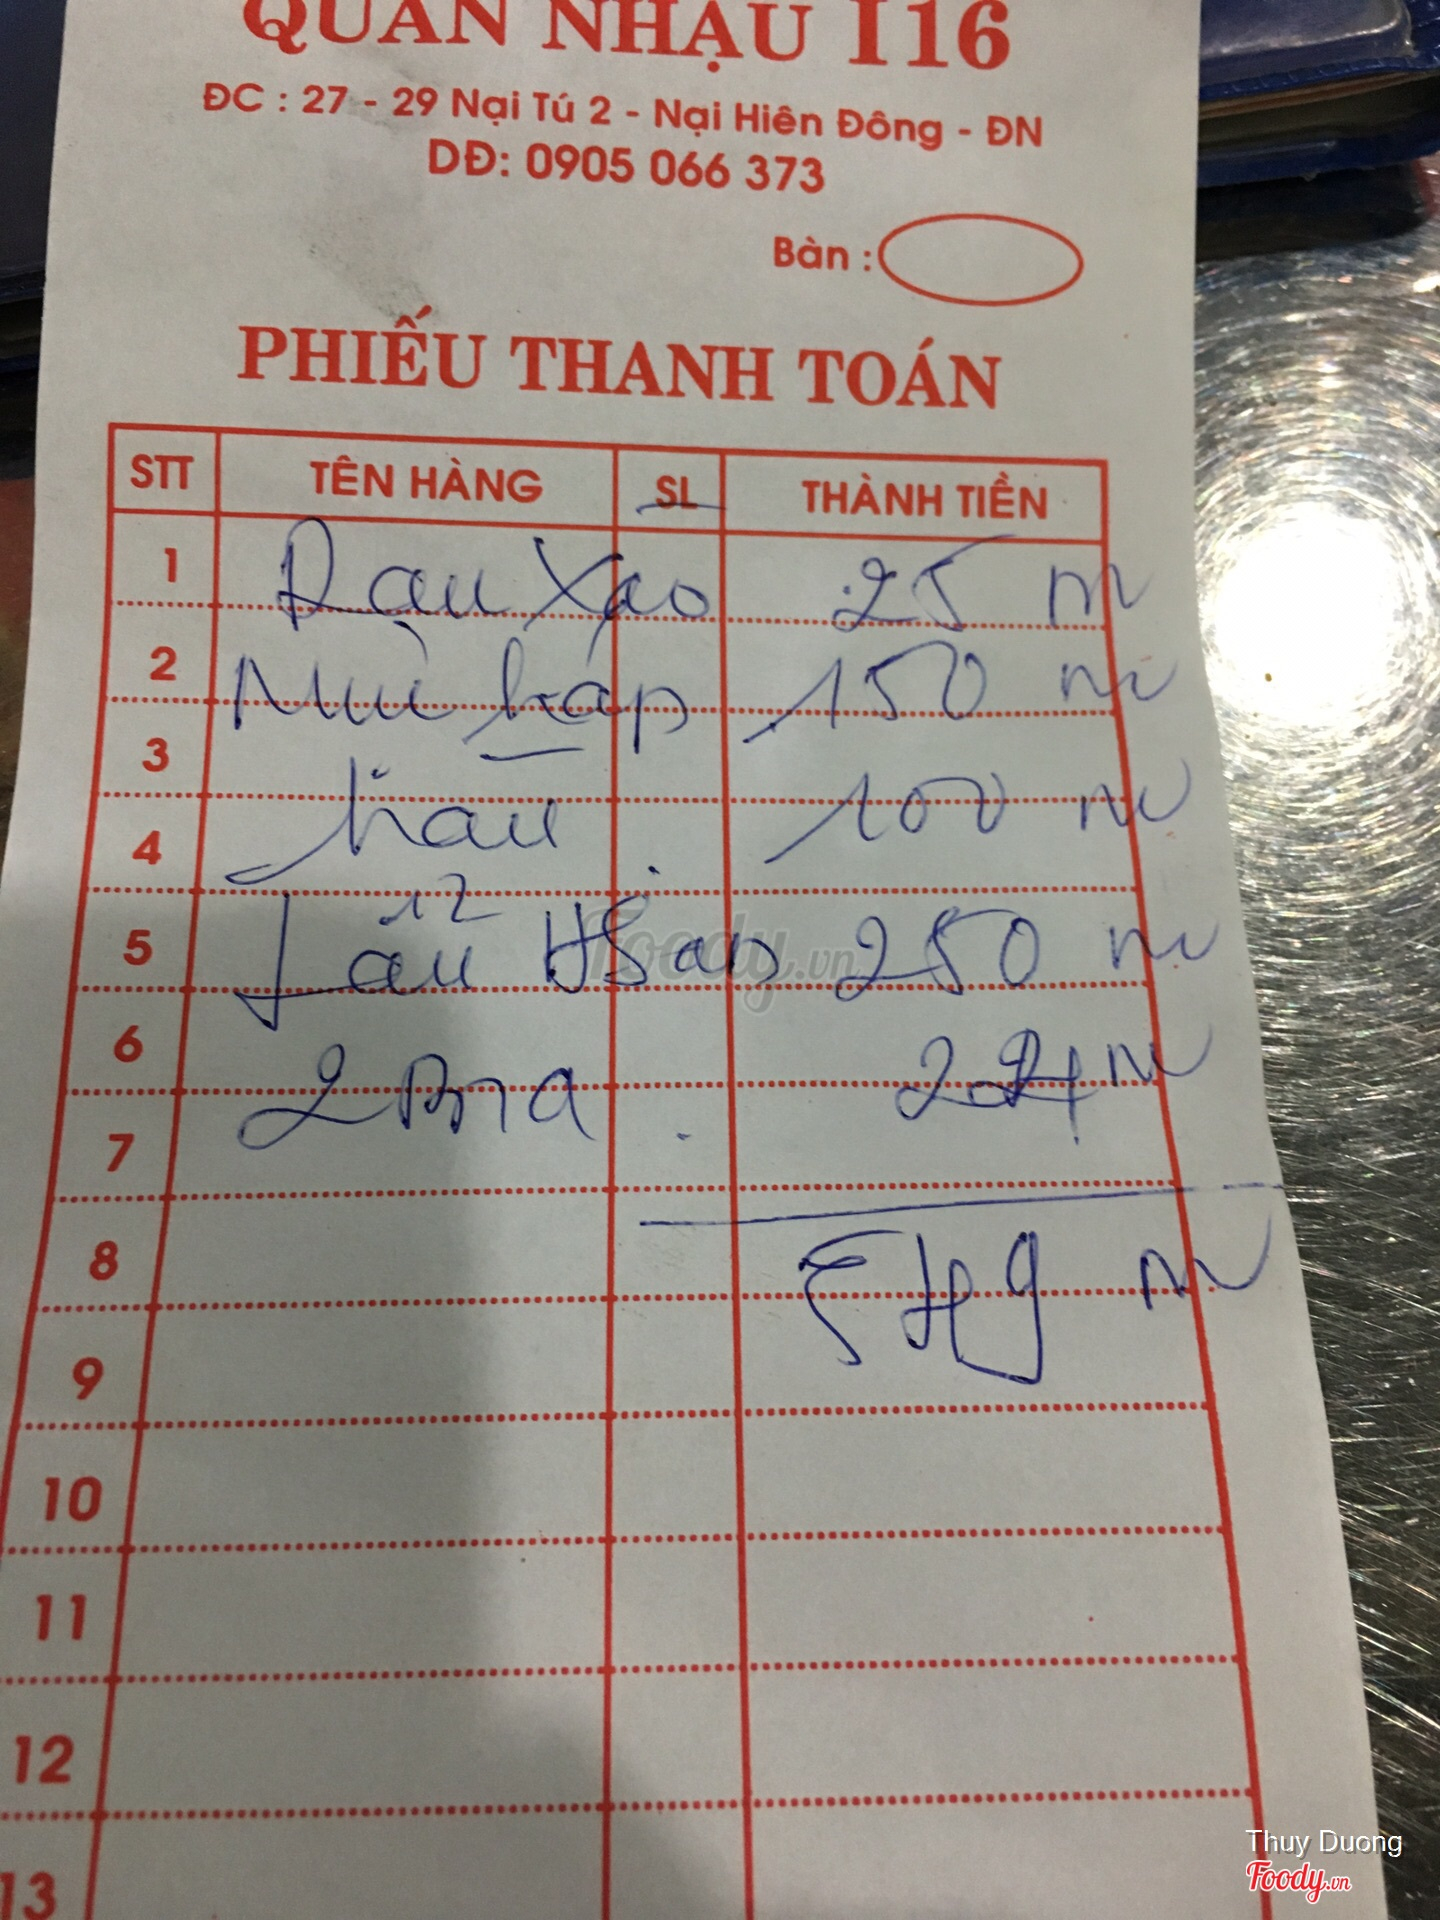 QUÁN NHẬU I16
ĐC : 27 - 29 Nại Tú 2 - Nại Hiên Đông - ĐN
DĐ: 0905 066 373
Bàn :
PHIẾU THANH TOÁN
STT TÊN HÀNG SL THÀNH TIỀN
1 Rau Xào 25 m
2 Mực hấp 150 m
3
4 hàu 100 m
5 Lẩu HSan 250 m
6
7 2 Bia 24 m
8 549 m
9
10
11
12
13
Foody.vn
Thuy Duong
Foody.vn